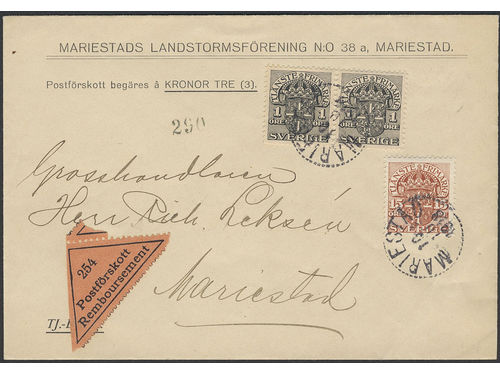 MARIESTADS LANDSTORMSFÖRENING N:O 38 a, MARIESTAD.
Postförskott begäres å KRONOR TRE (3).
290
TJÄNSTE FRIMÄRKE
1 1
ÖRE ÖRE
SVERIGE
TJÄNSTE FRIMÄRKE
1 1
ÖRE ÖRE
SVERIGE
MARIE
Grosshandlaren
Herr Rich. Leksén
TJÄNSTE FRIMÄRKE
15
MARIESTAD
Mariestad
254
Postförskott
Remboursement
TJ.-